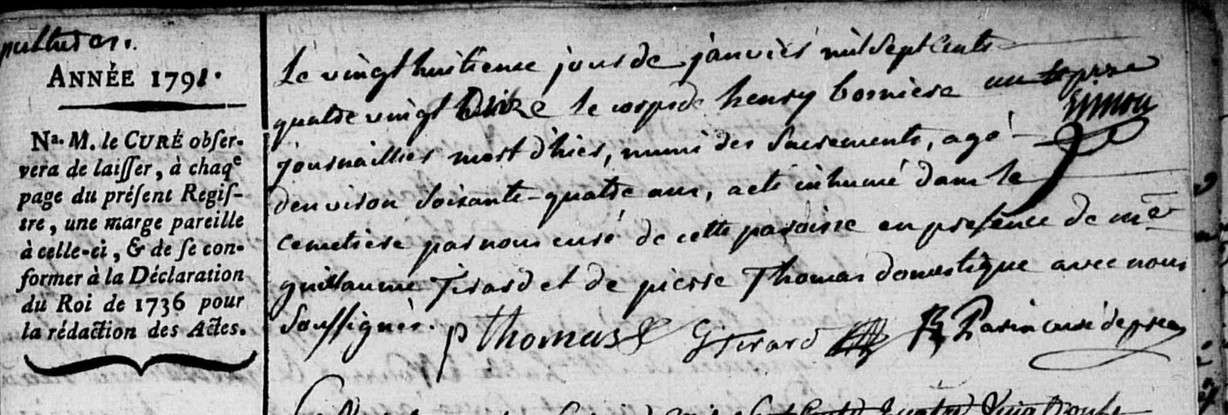 pultures.
ANNÉE 1791.
Na. M. le CURÉ obser-
vera de laisser, à chaqe
page du présent Regis-
tre, une marge pareille
à celle-ci, & de se con-
former à la Déclaration
du Roi de 1736 pour
la rédaction des Actes.
Le vingt huitieme jour de janvier mil sept cents
quatre vingt onze le corps de henry borniere
journaillier mort d'hier, muni des Sacrements, agé
denviron Soixante-quatre ans, a eté inhumé dans le
cemetière par nous curé de cette paroisse en presence de me
guillaume Tirard et de pierre Thomas domestique avec nous
Soussignés. p Thomas G Tirard